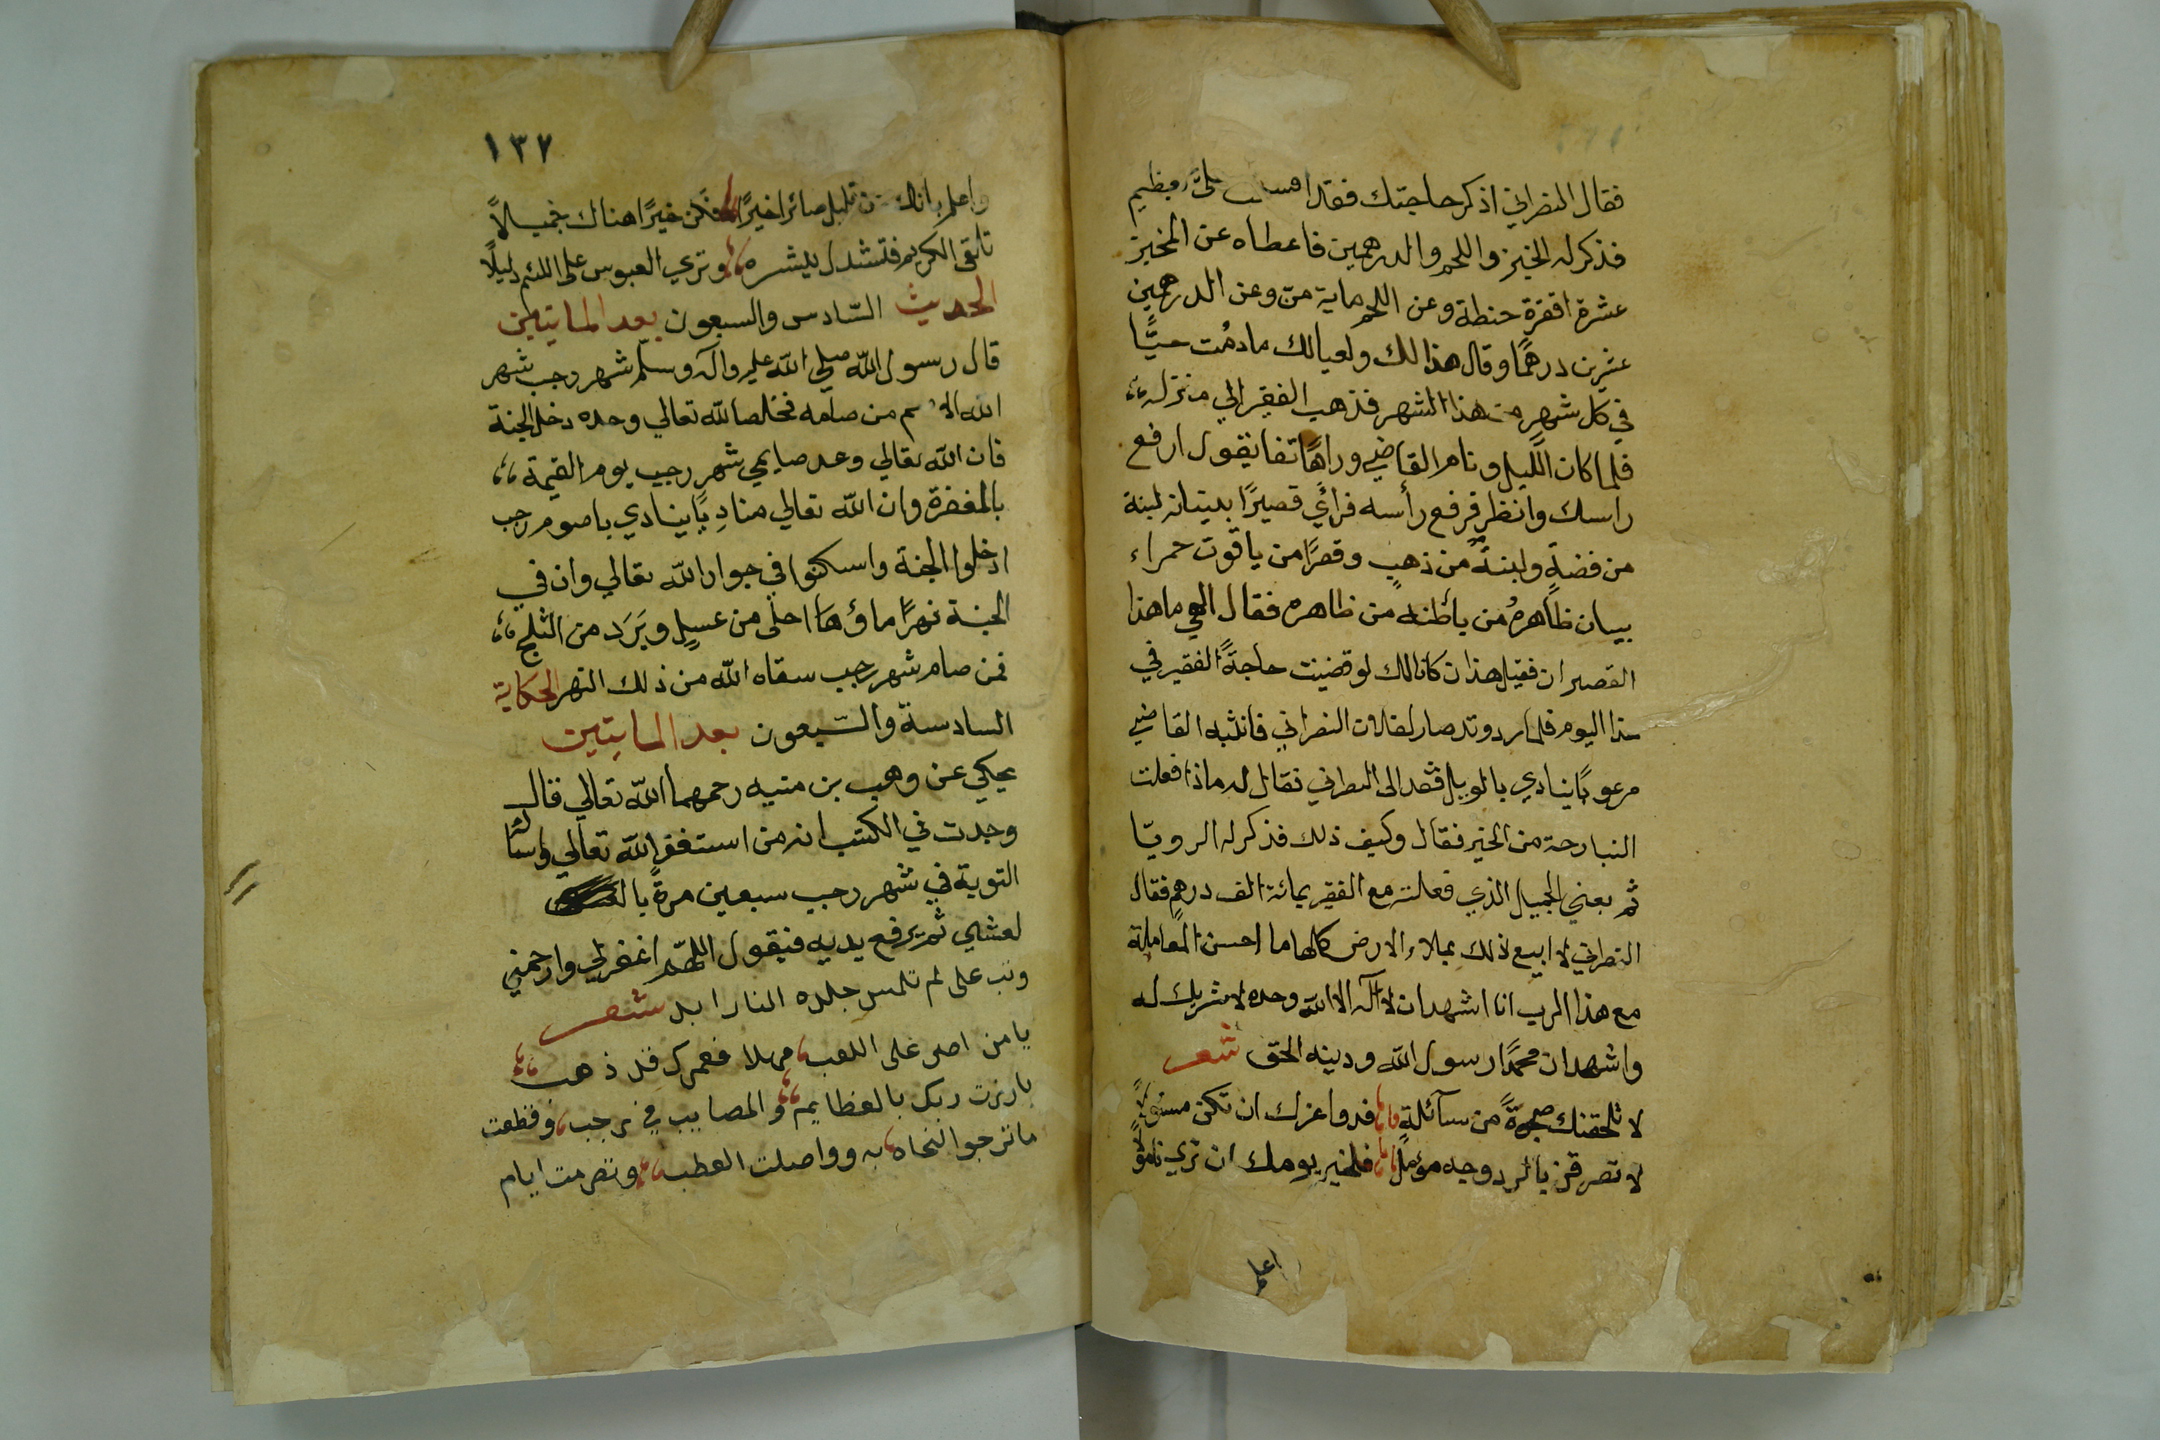 فقال النصراني اذكر حاجتك فقد اقسمت علي بعظيم
فذكر له الخبز واللحم والدرهمين فاعطاه عن الخبز
عشرة اقفزة حنطة وعن اللحم ماية من وعن الدرهمين
عشرين درهمًا وقال هذا لك ولعيالك ما دمُت حيًّا
في كل شهرٍ من هذا الشهر فذهب الفقير الي منزله
فلما كان اللّيل ونام القاضي وراهًاتفا يقول ارفع
راسك وانظر فرفع رأسه فرائَي قصيرًا بديتانه لبنة
من فضةٍ ولبنةً من ذهبٍ وقصرًا من ياقوت حمراء
بيبان ظاهرهُ من باطنه من ظاهره فقال الهي ما هذا
القصيران فقيل هذان كانا لك لو قضيت حاجةً الفقير في
هذا اليوم فلما رددته صار لفلان النصراني فانثبه القاضي
مرعوبًا ينادي بالويل فقد الى النصراني فقال له ماذا فعلت
النبارحة من الخير فقال وكيف ذلك فذكر له الرويّا
ثم بعني الجميل الذي فعلته مع الفقير بمائة الف درهم فقال
النصراني لا ابيع ذلك بملاء الارض كلها ما احسن المعاملة
مع هذا الرب انا اشهد ان لا اله الا الله وحده لا شريك له
واشهد ان محمدًا رسول الله ودينه الحق شعر
لا تلحقنك ضجرةً من سآئلةٍ فدواعزك ان تكن مسئولًا
لا تصرفن بالرد وجه مؤملٍ فلخير يومك ان تري مامولًا
اعلم
١٣٧
واعلم بانك عن قليل صائرا خيرًا فكن خيرًا هناك جميلًا
تلقى الكريم فتشدل بيشره وتري العبوس على اللئم دليلًا
الحديث السّادس والسبعون بعد المايتين
قال رسول الله صلى الله عليه وآله وسلم شهر رجب شهر
الله الاصم من صامه مخلصا لله تعالي وحده دخل الجنة
فان الله تعالي وعد صايمي شهر رجب يوم القيمة
بالمغفرة وان الله تعالي منادِيًا ينادي يا صوم رجب
ادخلوا الجنة واسكنوا في جوار الله تعالي وان في
الجنة نهرًا ماؤها احلى من عسلٍ ويَرَد من الثلج
فمن صام شهر رجب سقاه الله من ذلك النهر الحكاية
السادسة والسّبعون بعد المايتين
يحكي عن وهب بن منبه رحمهما الله تعالي قال
وجدت في الكتب انه من استغفر الله تعالي وسئالْ
التوبة في شهر رجب سبعين مرةً بال
لعشي ثم يرفع يديه فيقول اللهّم اغفر لي وارحمني
وتب على لم تلمس جلده النار ابد شعر
يا من اصر على اللعب مهلا فعمرك قد ذهب
بارزت ربك بالعظايم والمصايب في رجب وقطعت
ما ترجوا النجاه به وواصلت العطب وتصرمت ايام